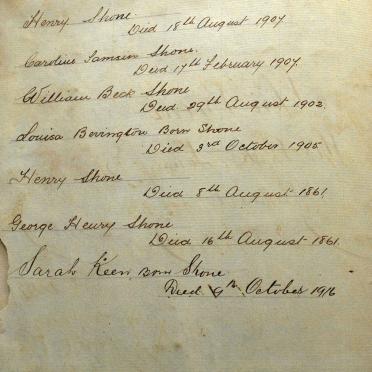 Henry Shone
Died 18th August 1907
Caroline Samson Shone.
Died 17th February 1907.
William Beck Shone
Died 29th August 1902.
Louisa Bevington Born Shone
Died 3rd October 1905
Henry Shone
Died 8th August 1861.
George Henry Shone
Died 16th August 1861.
Sarah Keen, Born Shone
Died 9th October 1916